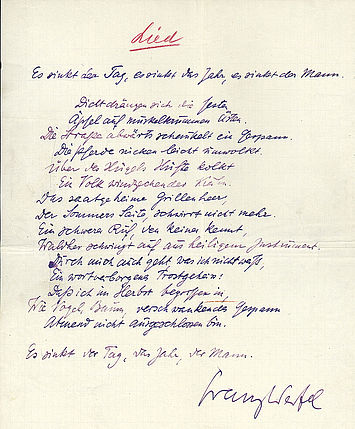 Lied
Es sinkt der Tag, es sinkt das Jahr, es sinkt der Mann.
Dicht drängen sich die festen
Äpfel auf muskelkrummen Ästen.
Die Straße abwärts schwankt ein Gespann.
Die Pferde nicken leicht umwölkt.
Über des Hügels Hüfte
Ein Volk
Das saatgeheime Grillenheer,
Der Sommers Saite, schwirrt nicht mehr.
Ein schwerer Ruf, den keiner kennt,
schwingt auf aus heiligem Instrument.
Durch mich auch geht, wer's nicht weiß,
Ein wortverborgenes
Daß ich im Herbst begriffen bin,
Wie Vogel, Baum, verschwankendes Gespann
Atmend nicht ausgeschlossen bin.
Es sinkt der Tag, das Jahr, der Mann.
Franz Werfel